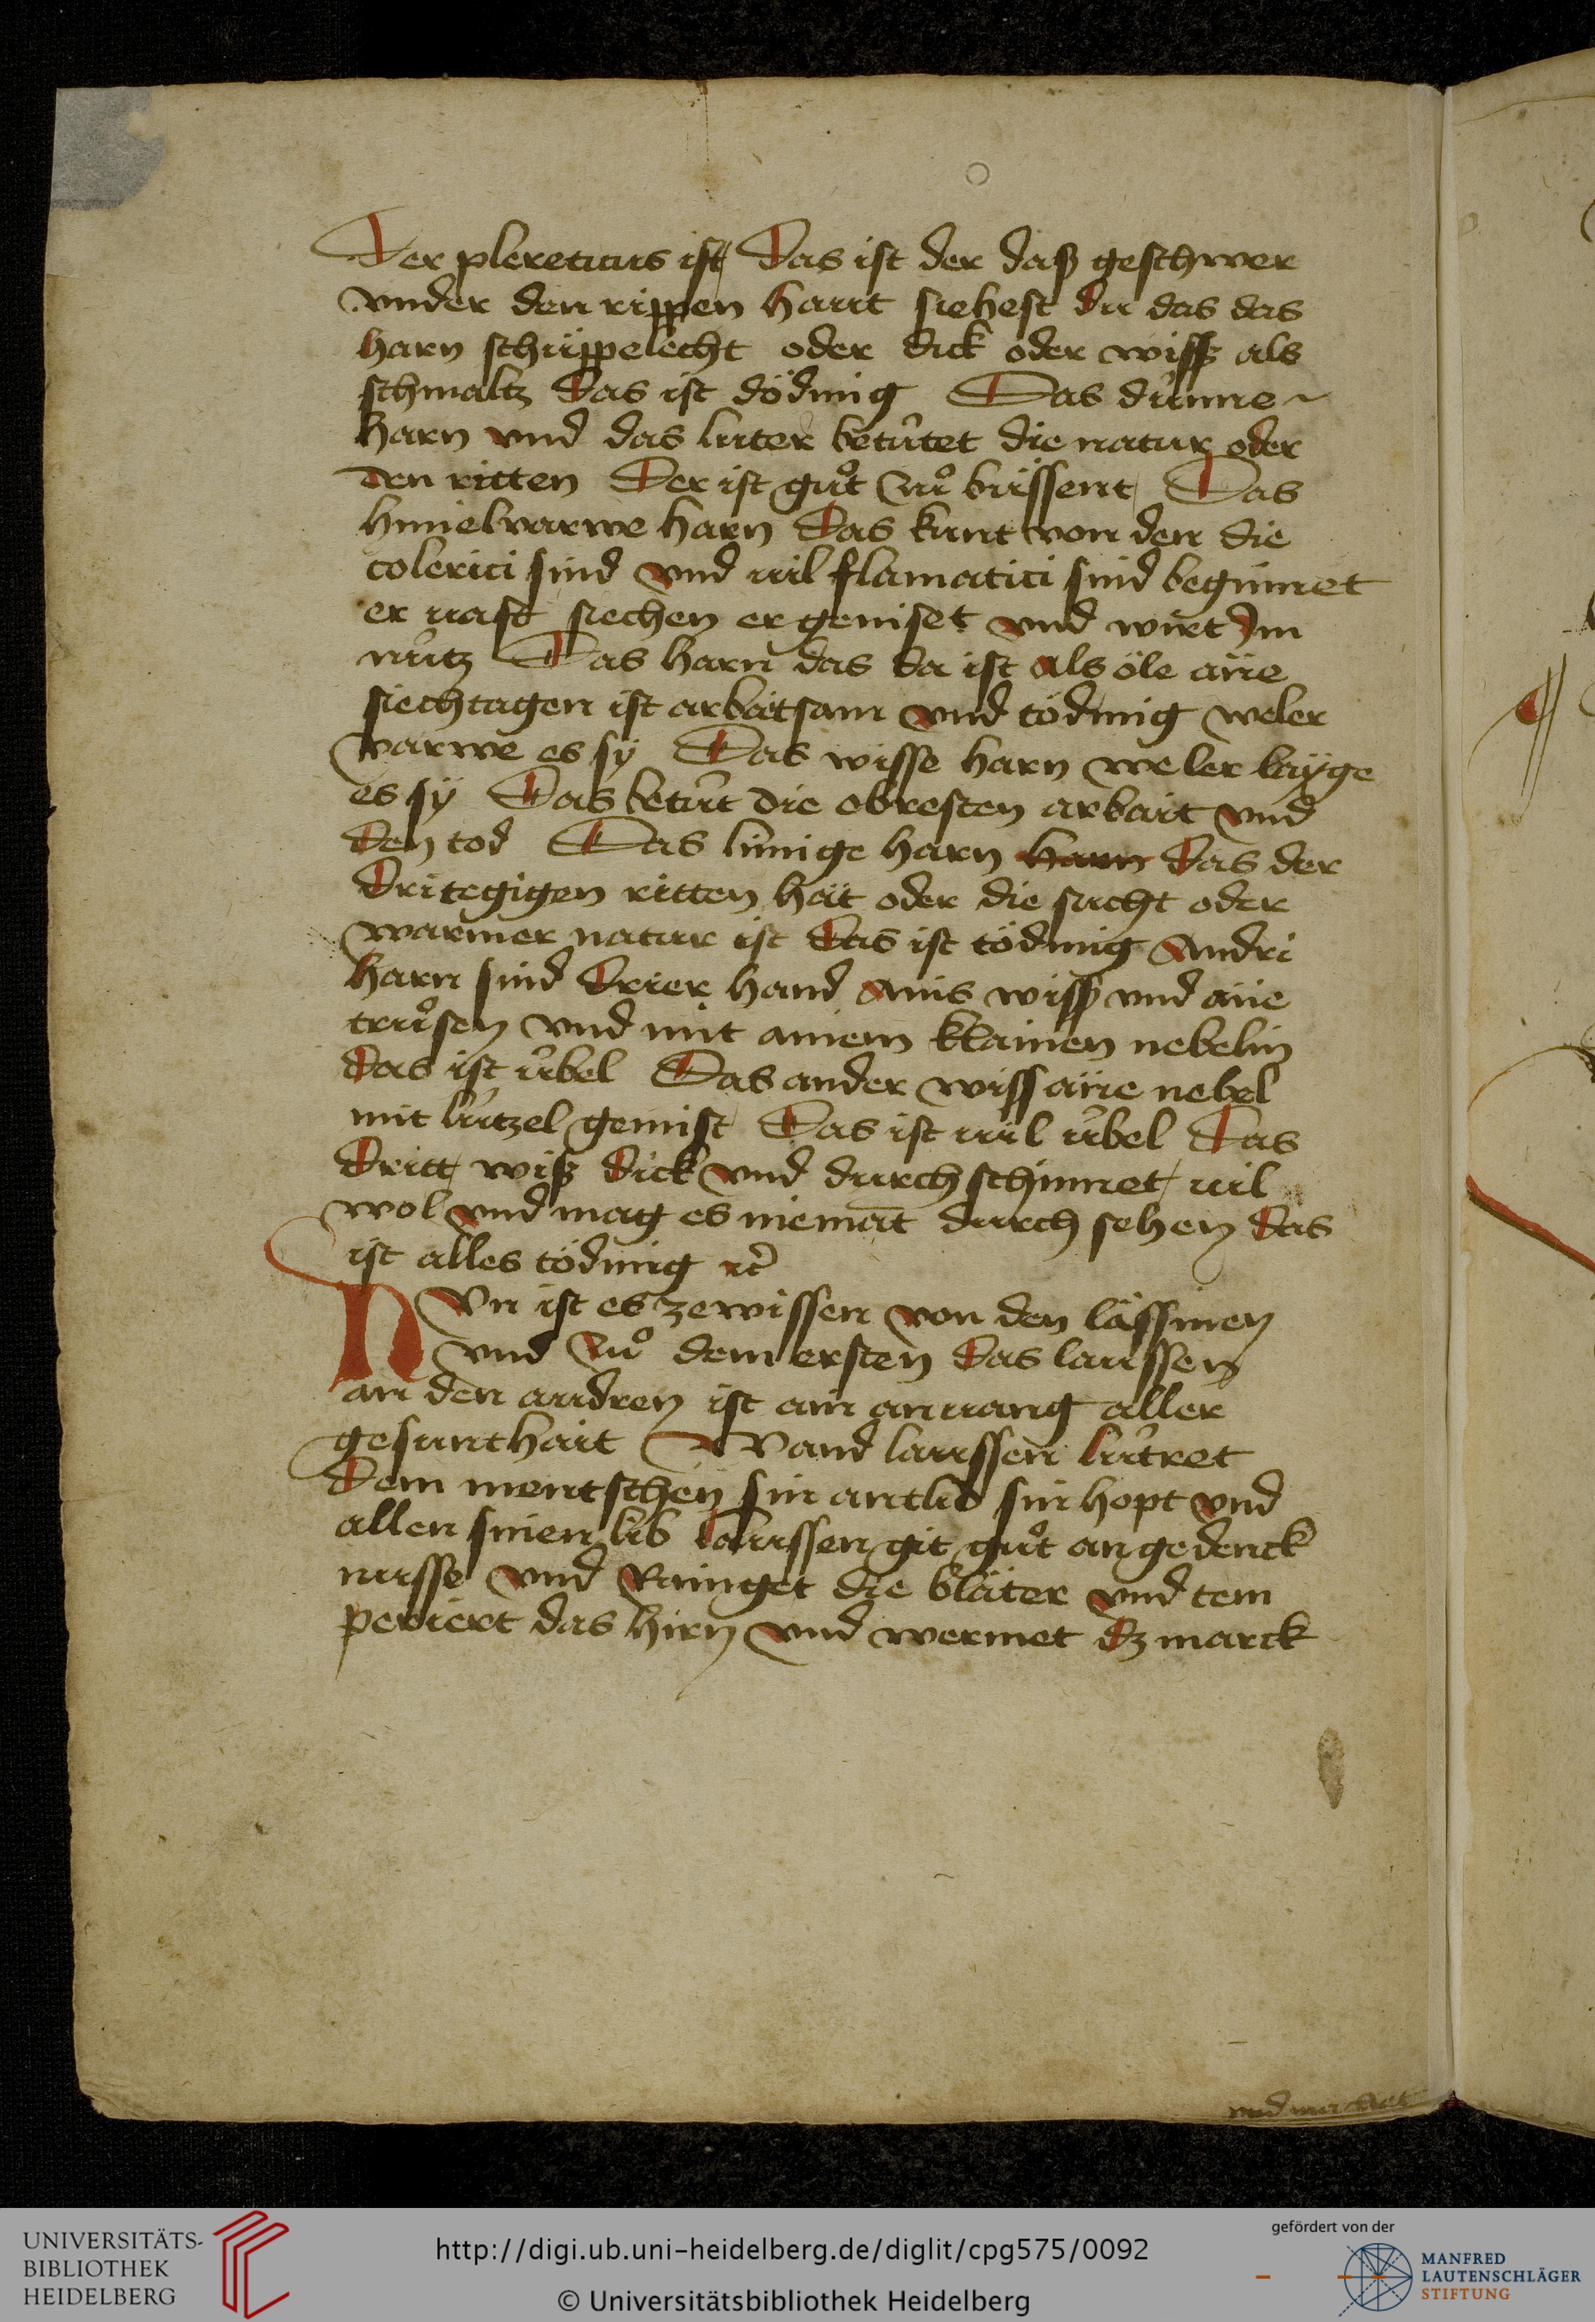 Der plereticus ist Das ist der daß geschwer
vnder den rippen haut siehest du das das
harn schüppelecht oder dick oder wiss als
schmaltz das ist dödmig Das dünne
harn vnd das luter betütet die natur oder
den ritten Der ist guͦt zuͦ büssent Das
himelvarwe harn Das kunt von den die
colerici sind vnd uil flamatici sind beginnet
er uast siechen er geniset vnd wirt Im
nütz Das harn das da ist als öle äne
siechtagen ist arbaitsam vnd tödmig weler
varwe es sÿ Das wisse harn weler layge
es sÿ Das betüt die obresten arbait vnd
den tod Das linnige harn harn das der
dritegigen ritten hät oder die sucht oder
warmer natur ist das ist tödmig Andri
harn sind drier hand ains wiss vnd äne
truͦsen vnd mit ainem klainen nebelin
das ist übel Das ander wiss äne nebel
mit lützel gemist Das ist uil übel Das
dritt wiß dick vnd durch schinnet uil
wol vnd mag es niemat durch sehen das
ist alles tödmig ꝛc
NVn ist es ze wissen von den lässinen
vnd zuͦ dem ersten das laussen
an den audren ist ain anuang aller
gesunthait Wand laussen lütret
dem mentschen sin antlit sin hopt vnd
allen sinen lib laussen git guͦt an gedenck
nusse vnd Rainget die bläter vnd tem
periert das hirn vnd wermet dz marck
UNIVERSITÄTS-
BIBLIOTHEK
HEIDELBERG
http://digi.ub.uni-heidelberg.de/diglit/cpg575/0092
© Universitätsbibliothek Heidelberg
gefördert von der
MANFRED
LAUTENSCHLÄGER
STIFTUNG